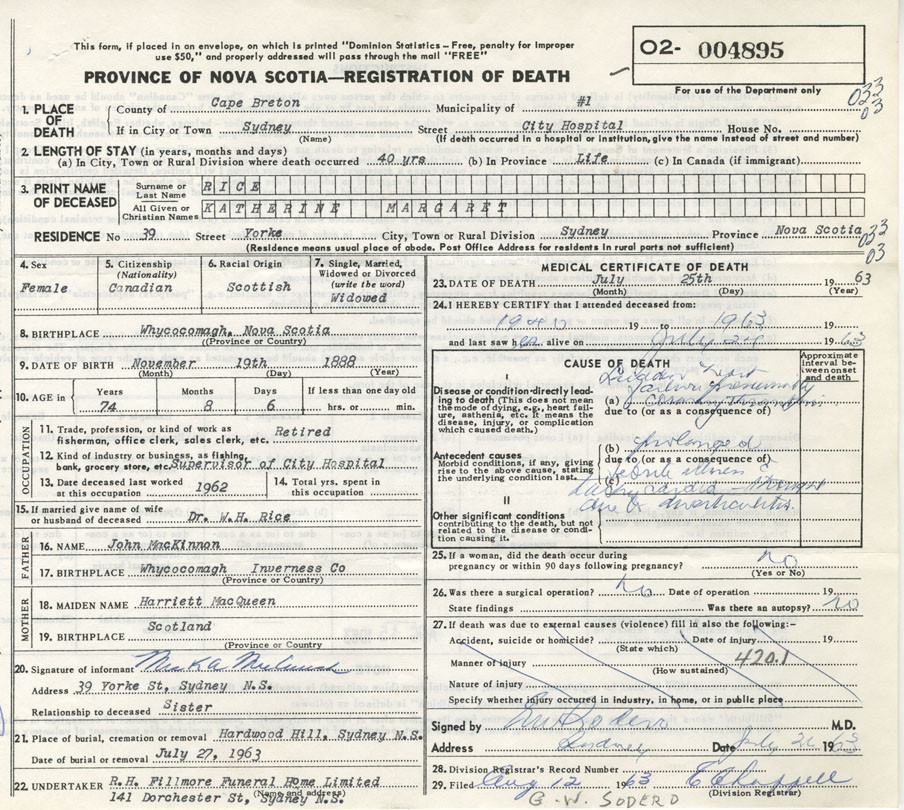 This form, if placed in an envelope, on which is printed "Dominion Statistics – Free, penalty for improper
use $50," and properly addressed will pass through the mail "FREE"
PROVINCE OF NOVA SCOTIA—REGISTRATION OF DEATH
O2- 004895
For use of the Department only
033
03
1. PLACE OF DEATH
County of Cape Breton Municipality of #1
If in City or Town Sydney Street City Hospital House No.
(Name) (If death occurred in a hospital or institution, give the name instead of street and number)
2. LENGTH OF STAY (in years, months and days)
(a) In City, Town or Rural Division where death occurred 40 yrs (b) In Province Life (c) In Canada (if immigrant)
3. PRINT NAME OF DECEASED
Surname or Last Name RICE
All Given or Christian Names KATHERINE MARGARET
RESIDENCE No 39 Street Yorke City, Town or Rural Division Sydney Province Nova Scotia
(Residence means usual place of abode. Post Office Address for residents in rural parts not sufficient)
033
03
4. Sex
Female
5. Citizenship
(Nationality)
Canadian
6. Racial Origin
Scottish
7. Single, Married, Widowed or Divorced
(write the word)
Widowed
8. BIRTHPLACE Whycocomagh, Nova Scotia
(Province or Country)
9. DATE OF BIRTH November 19th 1888
(Month) (Day) (Year)
10. AGE in
Years Months Days If less than one day old
74 8 6 hrs. or min.
OCCUPATION
11. Trade, profession, or kind of work as
fisherman, office clerk, sales clerk, etc. Retired
12. Kind of industry or business, as fishing,
bank, grocery store, etc. Supervisor of City Hospital
13. Date deceased last worked
at this occupation 1962
14. Total yrs. spent in
this occupation
15. If married give name of wife
or husband of deceased Dr. W.H. Rice
FATHER
16. NAME John MacKinnon
17. BIRTHPLACE Whycocomagh Inverness Co
(Province or Country)
MOTHER
18. MAIDEN NAME Harriett MacQueen
19. BIRTHPLACE Scotland
(Province or Country
20. Signature of informant
Address 39 Yorke St, Sydney N.S.
Relationship to deceased Sister
21. Place of burial, cremation or removal Hardwood Hill, Sydney N.S.
Date of burial or removal July 27, 1963
22. UNDERTAKER R.H. Fillmore Funeral Home Limited
(Name and address)
141 Dorchester St, Sydney N.S.
MEDICAL CERTIFICATE OF DEATH
23. DATE OF DEATH July 25th 1963
(Month) (Day) (Year)
24. I HEREBY CERTIFY that I attended deceased from:
19 to 1963 19
and last saw her alive on July 24 1963
CAUSE OF DEATH
Approximate interval between onset and death
I
Disease or condition directly leading to death (This does not mean the mode of dying, e.g., heart failure, asthenia, etc. It means the disease, injury, or complication which caused death.)
(a)
due to (or as a consequence of)
Antecedent causes
Morbid conditions, if any, giving rise to the above cause, stating the underlying condition last.
(b) prolonged
due to (or as a consequence of)
(c) illness
due to diverticulitis
II
Other significant conditions
contributing to the death, but not related to the disease or condition causing it.
25. If a woman, did the death occur during
pregnancy or within 90 days following pregnancy? no
(Yes or No)
26. Was there a surgical operation? no Date of operation 19
State findings Was there an autopsy? no
27. If death was due to external causes (violence) fill in also the following:-
Accident, suicide or homicide? Date of injury 19
(State which)
Manner of injury 420.1
(How sustained)
Nature of injury
Specify whether injury occurred in industry, in home, or in public place
Signed by M.D.
Address Sydney Date July 26 1963
28. Division Registrar's Record Number
29. Filed Aug 12 1963
(Division Registrar)
G. W. SODERO